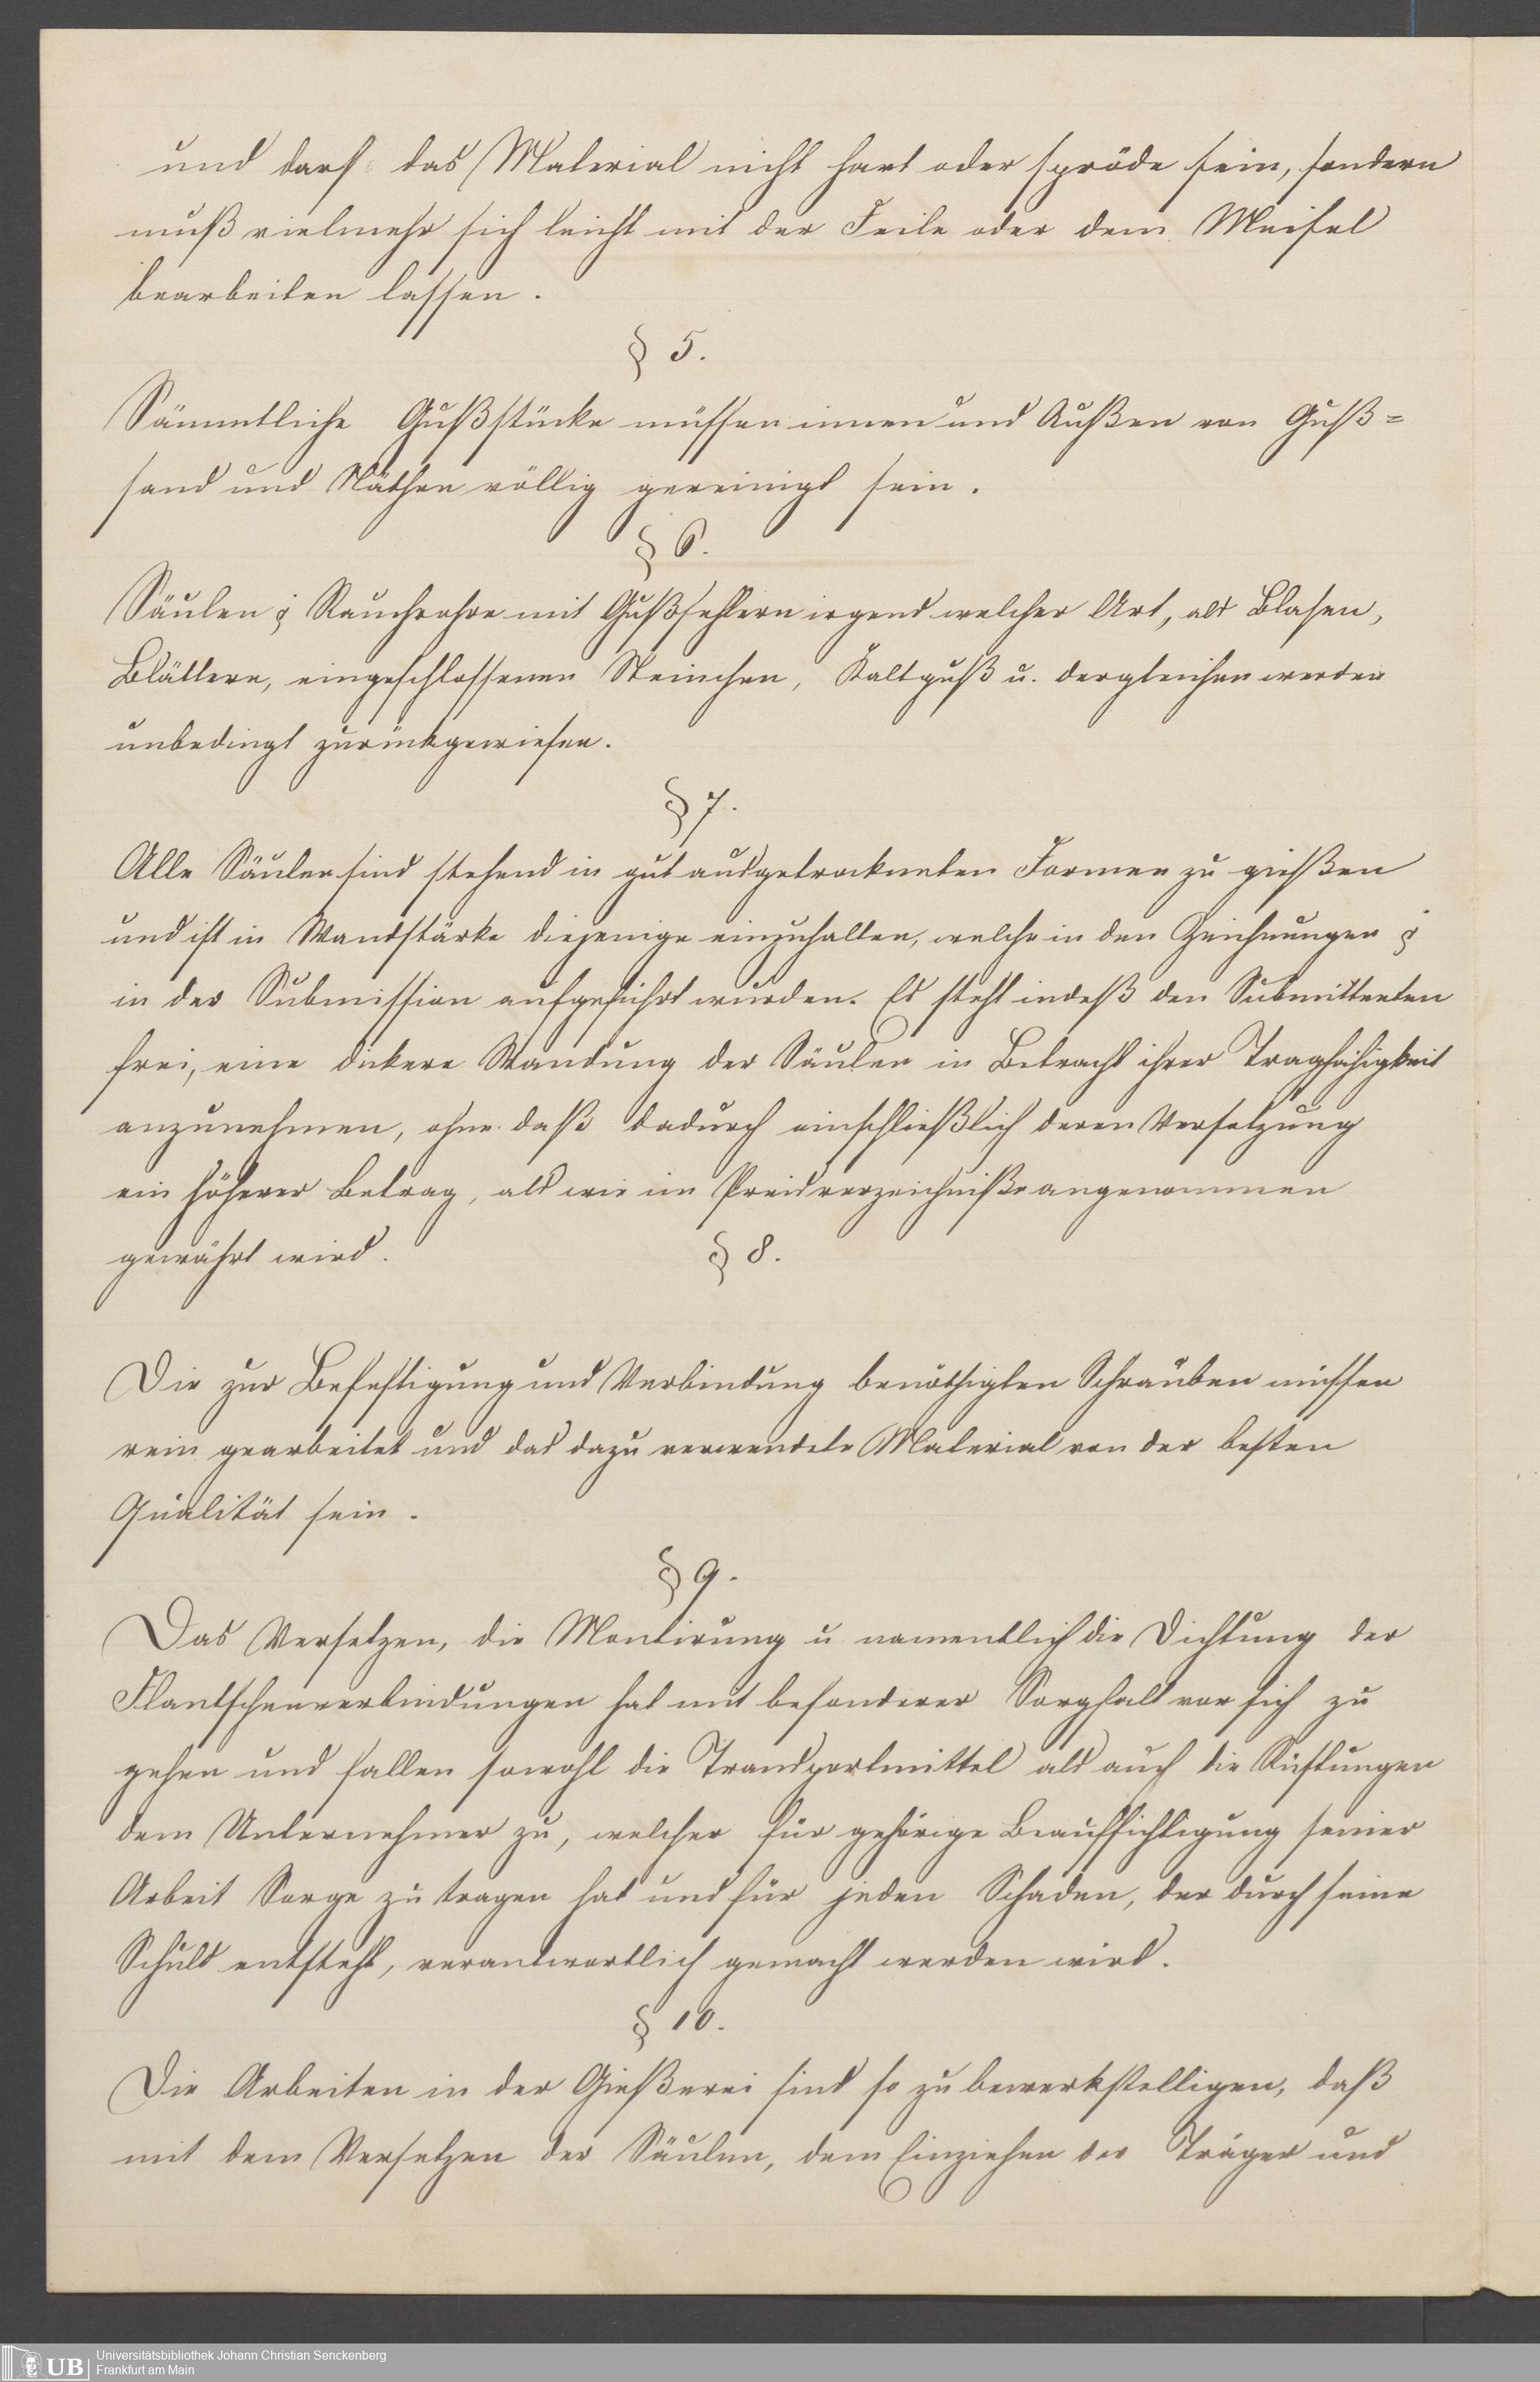 und darf das Material nicht hart oder spröde sein, sondern
muß vielmehr sich leicht mit der Feile oder dem Meisel
bearbeiten lassen.
§ 5.
Sämmtliche Gußstücke müssen innen und Außen von Guß=
sand und Näthen völlig gereinigt sein.
§ 6.
Säulen & Rauchrohre mit Gußfehlern irgend welcher Art, als Blasen,
Blättern, eingeschlossenen Steinchen, Kaltguß u. dergleichen werden
unbedingt zurückgewiesen.
§ 7.
Alle Säulen sind stehend in gut ausgetrockneten Formen zu gießen
und ist in Wandstärke diejenige einzuhalten, welche in den Zeichnungen &
in der Submission aufgeführt wurden. Es steht indeß den Submittenten
frei, eine dickere Wandung der Säulen in Betracht ihrer Tragfähigkeit
anzunehmen, ohne daß dadurch einschließlich deren Versetzung
ein höherer Betrag, als wie im Preisverzeichniße angenommen
gewährt wird.
§ 8.
Die zur Befestigung und Verbindung benöthigten Schrauben müssen
rein gearbeitet und das dazu verwendete Material von der besten
Qualität sein.
§ 9.
Das Versetzen, die Montirung u namentlich die Dichtung der
Flantschenverbindungen hat mit besonderer Sorgfalt vor sich zu
gehen und fallen sowohl die Transportmittel als auch die Rüstungen
dem Unternehmer zu, welcher für gehörige Beaufsichtigung seiner
Arbeit Sorge zu tragen hat und für jeden Schaden, der durch seine
Schuld entsteht, verantwortlich gemacht werden wird.
§ 10.
Die Arbeiten in der Gießerei sind so zu bewerkstelligen, daß
mit dem Versetzen der Säulen, dem Einziehen der Träger und
UB
Universitätsbibliothek Johann Christian Senckenberg
Frankfurt am Main